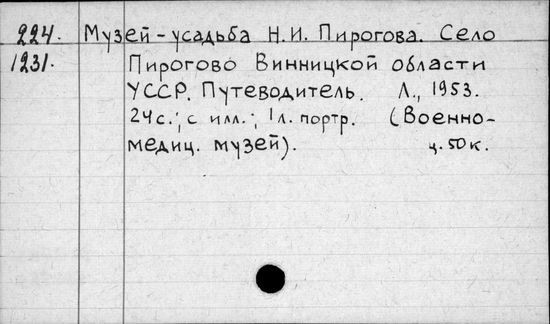 224. Музей-усадьба Н.И. Пирогова. Село
1231. Пирогово Винницкой области
УССР. Путеводитель. Л., 1953.
24с.; с илл.; 1л. портр. (Военно-
медиц. музей). ц. 50к.